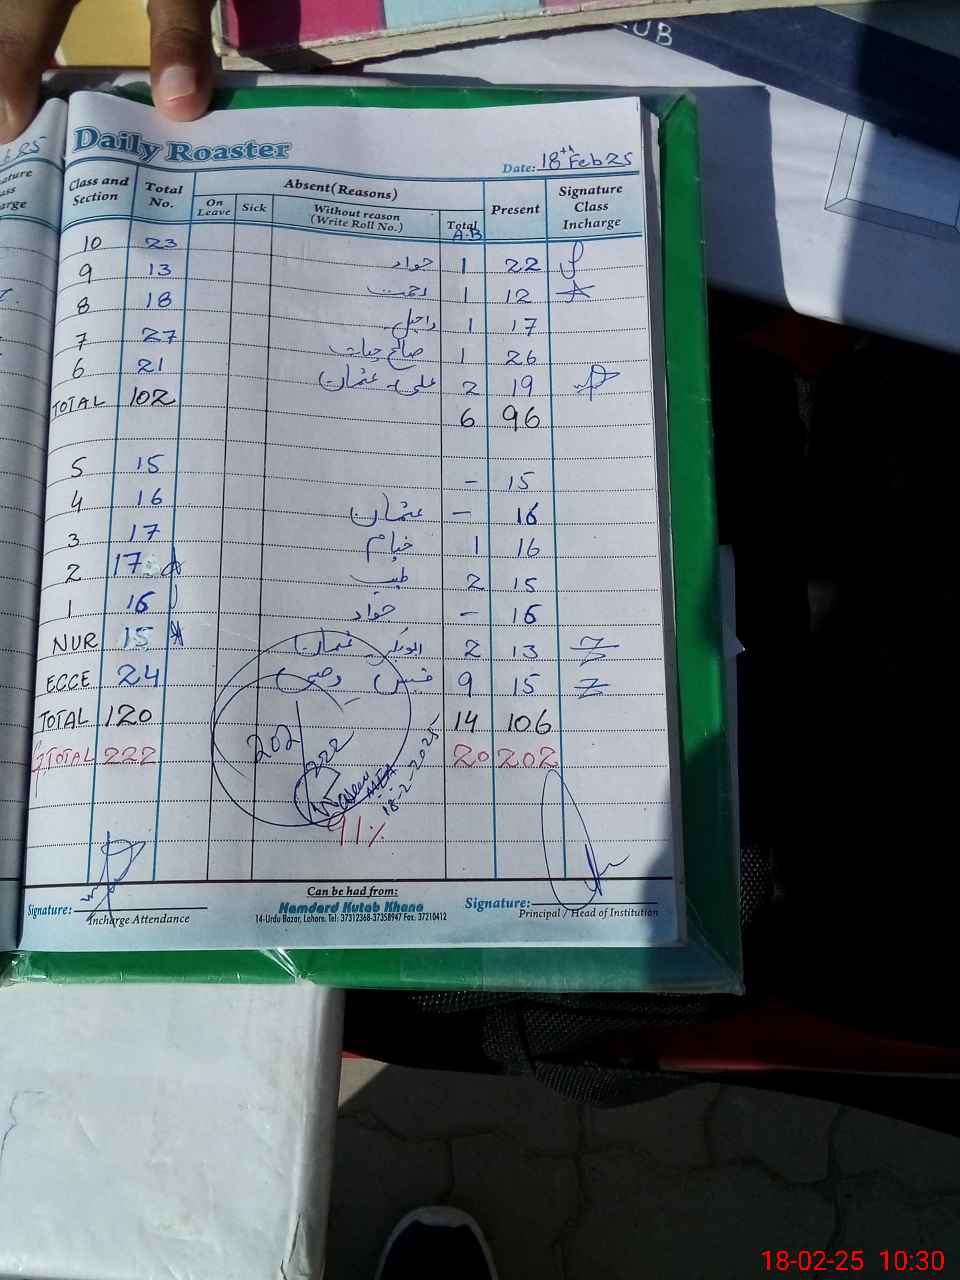 UB
Daily Roaster
Date: 18th Feb 25
Class and Section Total No. Absent (Reasons) Present Signature Class Incharge
On Leave Sick Without reason (Write Roll No.) Total A.B
10 23 جواد 1 22
9 13 رحمت 1 12
8 18 راحیل 1 17
7 27 صالح حیات 1 26
6 21 علی۔ عثمان 2 19
TOTAL 102 6 96
5 15 - 15
4 16 عثمان - 16
3 17 خیام 1 16
2 17 2 15
1 16 جواد - 16
NUR 15 عثمان 2 13
ECCE 24 9 15
TOTAL 120 14 106
G TOTAL 222 20 202
202
222
18-2-2025
91%
Signature:
Incharge Attendance
Can be had from:
Hamdard Kutab Khana
14-Urdu Bazar, Lahore. Tel: 37312368-37358947 Fax: 37210412
Signature:
Principal / Head of Institution
18-02-25 10:30